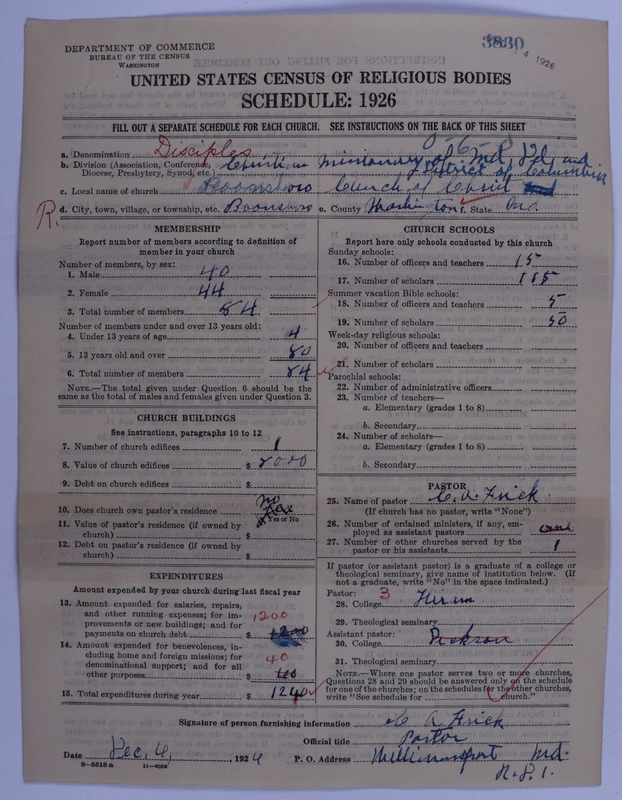 DEPARTMENT OF COMMERCE
BUREAU OF THE CENSUS
WASHINGTON
3830
4 1926
UNITED STATES CENSUS OF RELIGIOUS BODIES
SCHEDULE: 1926
FILL OUT A SEPARATE SCHEDULE FOR EACH CHURCH. SEE INSTRUCTIONS ON THE BACK OF THIS SHEET
a. Denomination Disciples
b. Division (Association, Conference, Diocese, Presbytery, Synod, etc.) Christian Missionary of Md, Del, and District of Columbia
c. Local name of church Boonsboro Church of Christ
R. d. City, town, village, or township, etc. Boonsboro e. County Washington f. State Md.
MEMBERSHIP
Report number of members according to definition of member in your church
Number of members, by sex:
1. Male 40
2. Female 44
3. Total number of members 84
Number of members under and over 13 years old:
4. Under 13 years of age 4
5. 13 years old and over 80
6. Total number of members 84
NOTE.—The total given under Question 6 should be
same as the total of males and females given under Question 3.
CHURCH BUILDINGS
See instructions, paragraphs 10 to 12
7. Number of church edifices 1
8. Value of church edifices $ 2000
9. Debt on church edifices $
10. Does church own pastor's residence no
Yes or No
11. Value of pastor's residence (if owned by
church) $
12. Debt on pastor's residence (if owned by
church) $
EXPENDITURES
Amount expended by your church during last fiscal year
13. Amount expended for salaries, repairs,
and other running expenses; for im-
provements or new buildings; and for
payments on church debt $ 1200 1200
14. Amount expended for benevolences, in-
cluding home and foreign missions; for
denominational support; and for all
other purposes $ 40 40
15. Total expenditures during year $ 1240
CHURCH SCHOOLS
Report here only schools conducted by this church
Sunday schools:
16. Number of officers and teachers 15
17. Number of scholars 115
Summer vacation Bible schools:
18. Number of officers and teachers 5
19. Number of scholars 50
Week-day religious schools:
20. Number of officers and teachers
21. Number of scholars
Parochial schools:
22. Number of administrative officers
23. Number of teachers—
a. Elementary (grades 1 to 8)
b. Secondary
24. Number of scholars—
a. Elementary (grades 1 to 8)
b. Secondary
PASTOR
25. Name of pastor C. A. Frick.
(If church has no pastor, write "None")
26. Number of ordained ministers, if any, em-
ployed as assistant pastors one
27. Number of other churches served by the
pastor or his assistants 1
If pastor (or assistant pastor) is a graduate of a college or
theological seminary, give name of institution below. (If
not a graduate, write "No" in the space indicated.)
Pastor: 3
28. College Hiram
29. Theological seminary
Assistant pastor:
30. College
31. Theological seminary
NOTE.—Where one pastor serves two or more churches,
Questions 28 and 29 should be answered only on the schedule
for one of the churches; on the schedules for the other churches,
write "See schedule for church."
Signature of person furnishing information C A Frick
Official title Pastor
Date Dec. 4, 1926 P. O. Address Williamsport Md.
R.F.D. 1.
8—5518a 11—9054